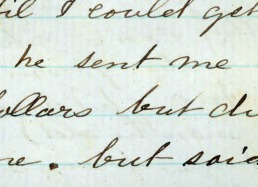 til I could get
he sent me
dollars but du
re. but said